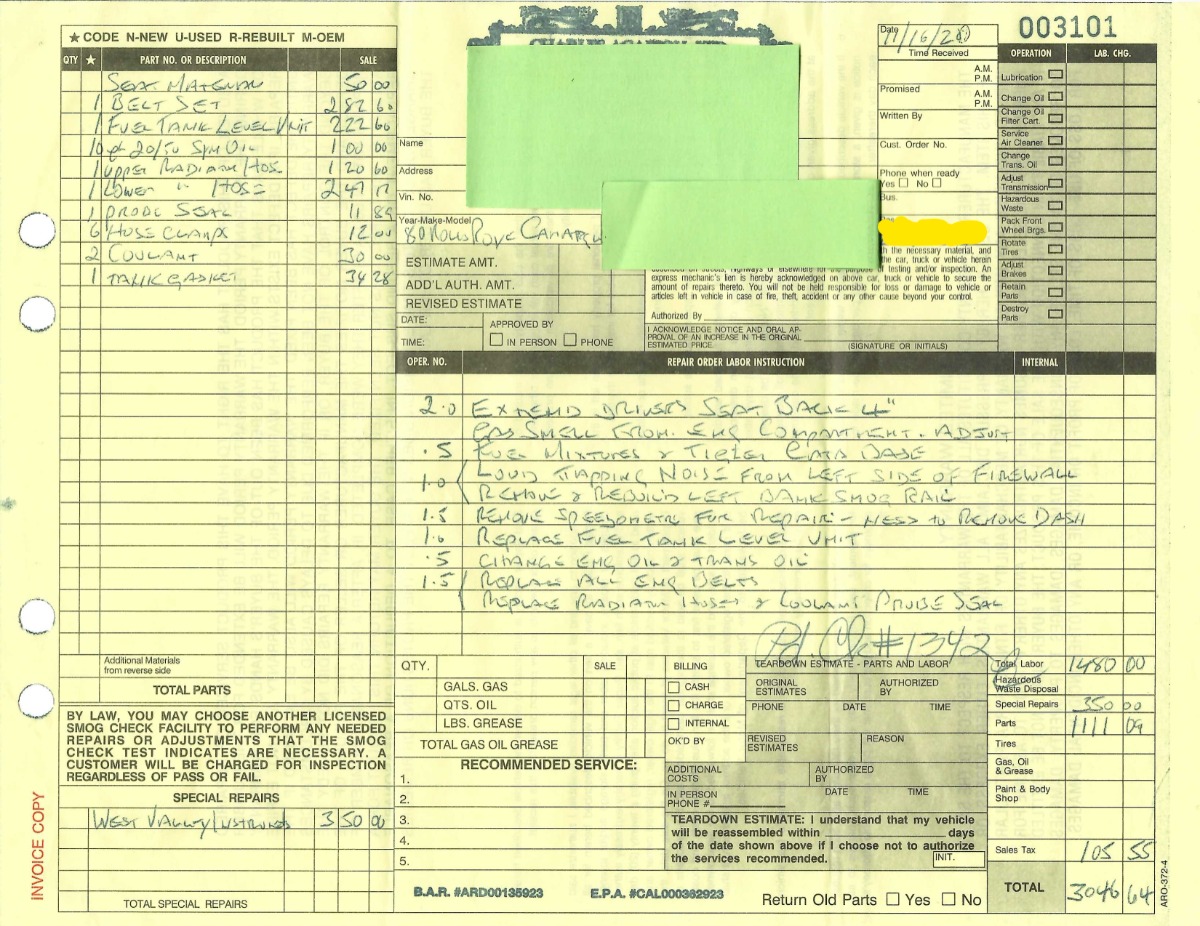 ★ CODE N-NEW U-USED R-REBUILT M-OEM
QTY ★ PART NO. OR DESCRIPTION SALE
SEAT MATERIAL 50 00
1 BELT SET 282 60
1 FUEL TANK LEVEL UNIT 222 60
10 qt 20/50 SYN OIL 100 00
1 UPPER RADIATOR HOSE 120 60
1 LOWER " HOSE 247 17
1 PROBE SEAL 11 89
6 HOSE CLAMPS 12 00
2 COOLANT 30 00
1 TANK GASKET 34 28
Additional Materials
from reverse side
TOTAL PARTS
BY LAW, YOU MAY CHOOSE ANOTHER LICENSED
SMOG CHECK FACILITY TO PERFORM ANY NEEDED
REPAIRS OR ADJUSTMENTS THAT THE SMOG
CHECK TEST INDICATES ARE NECESSARY. A
CUSTOMER WILL BE CHARGED FOR INSPECTION
REGARDLESS OF PASS OR FAIL.
SPECIAL REPAIRS
WEST VALLEY INSTRUMENTS 350 00
TOTAL SPECIAL REPAIRS
INVOICE COPY
Name
Address
Vin. No.
Year-Make-Model
80 ROLLS ROYCE CAMARGUE
ESTIMATE AMT.
ADD'L AUTH. AMT.
REVISED ESTIMATE
DATE:
TIME:
APPROVED BY
IN PERSON PHONE
Date 11/16/20
Time Received
A.M.
P.M.
Promised
A.M.
P.M.
Written By
Cust. Order No.
Phone when ready
Yes No
Bus.
th the necessary material, and
the car, truck or vehicle herein
of testing and/or inspection. An
express mechanic's lien is hereby acknowledged on above car, truck or vehicle to secure the
amount of repairs thereto. You will not be held responsible for loss or damage to vehicle or
articles left in vehicle in case of fire, theft, accident or any other cause beyond your control.
Authorized By
I ACKNOWLEDGE NOTICE AND ORAL AP-
PROVAL OF AN INCREASE IN THE ORIGINAL
ESTIMATED PRICE.
(SIGNATURE OR INITIALS)
003101
OPERATION LAB. CHG.
Lubrication
Change Oil
Change Oil
Filter Cart.
Service
Air Cleaner
Change
Trans. Oil
Adjust
Transmission
Hazardous
Waste
Pack Front
Wheel Brgs.
Rotate
Tires
Adjust
Brakes
Retain
Parts
Destroy
Parts
OPER. NO. REPAIR ORDER LABOR INSTRUCTION INTERNAL
2.0 EXTEND DRIVERS SEAT BACK 4"
GAS SMELL FROM ENG COMPARTMENT. ADJUST
.5 FUEL MIXTURES & TIGHTEN CARB BASE
1.0 LOUD TAPPING NOISE FROM LEFT SIDE OF FIREWALL
REMOVE & REBUILD LEFT BANK SMOG RAIL
1.5 REMOVE SPEEDOMETER FOR REPAIR - NEED TO REMOVE DASH
1.0 REPLACE FUEL TANK LEVEL UNIT
.5 CHANGE ENG OIL & TRANS OIL
1.5 REPLACE ALL ENG BELTS
REPLACE RADIATOR HOSES & COOLANT PROBE SEAL
Pd. Ck #1342
QTY. SALE
GALS. GAS
QTS. OIL
LBS. GREASE
TOTAL GAS OIL GREASE
RECOMMENDED SERVICE:
1.
2.
3.
4.
5.
BILLING
CASH
CHARGE
INTERNAL
OK'D BY
TEARDOWN ESTIMATE - PARTS AND LABOR
ORIGINAL
ESTIMATES
AUTHORIZED
BY
PHONE DATE TIME
REVISED
ESTIMATES
REASON
ADDITIONAL
COSTS
AUTHORIZED
BY
IN PERSON
PHONE #
DATE TIME
TEARDOWN ESTIMATE: I understand that my vehicle
will be reassembled within days
of the date shown above if I choose not to authorize
the services recommended.
INIT.
B.A.R. #ARD00135923 E.P.A. #CAL000362923
Return Old Parts Yes No
Total Labor 1480 00
Hazardous
Waste Disposal
Special Repairs 350 00
Parts 1111 09
Tires
Gas, Oil
& Grease
Paint & Body
Shop
Sales Tax 105 55
TOTAL 3046 64
ARO-372-4